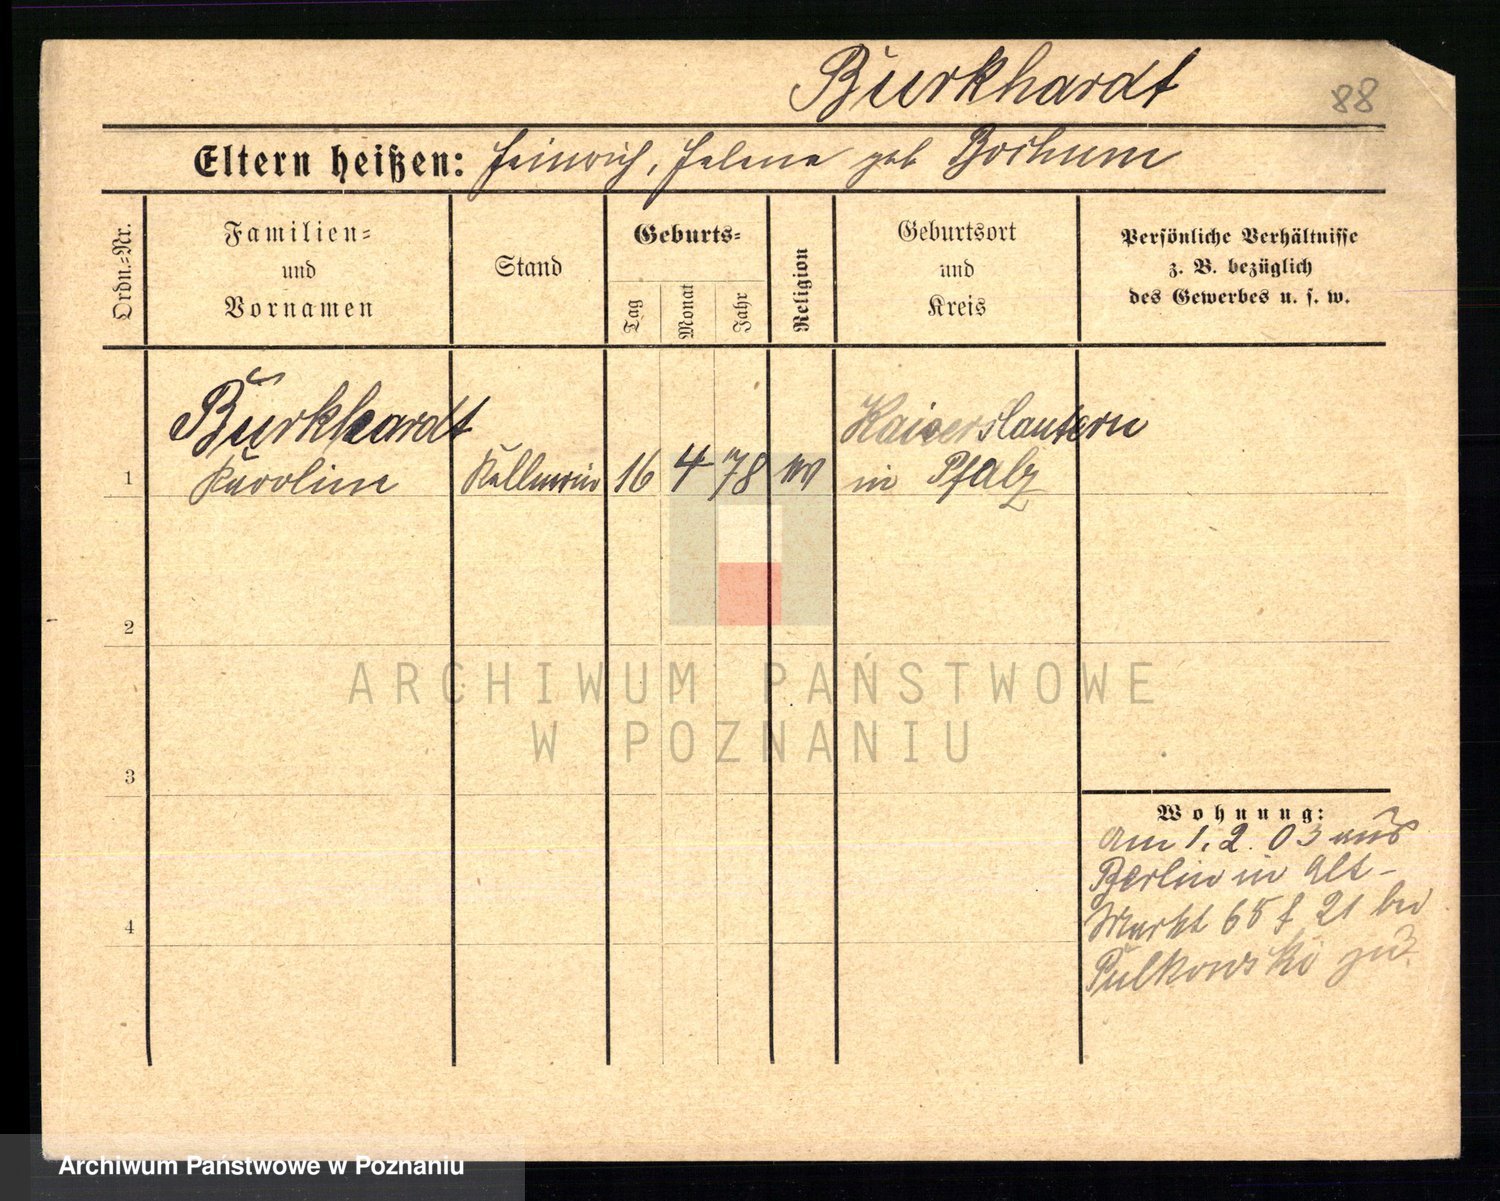 Burkhardt
88
Eltern heißen: Heinrich, Helene geb Bochum
Ordn.-Nr.
Familien-
und
Vornamen
Stand
Geburts-
Tag
Monat
Jahr
Religion
Geburtsort
und
Kreis
Persönliche Verhältnisse
z. B. bezüglich
des Gewerbes u. s. w.
Burkhardt
Karoline
1
Kellnerin
16
4
78
Kaiserslautern
in Pfalz
2
ARCHIWUM PAŃSTWOWE
W POZNANIU
3
Wohnung:
am 1. 2. 03 aus
Berlin in Alt-
Markt 65 f 21 bei
Pulkowski
4
Archiwum Państwowe w Poznaniu